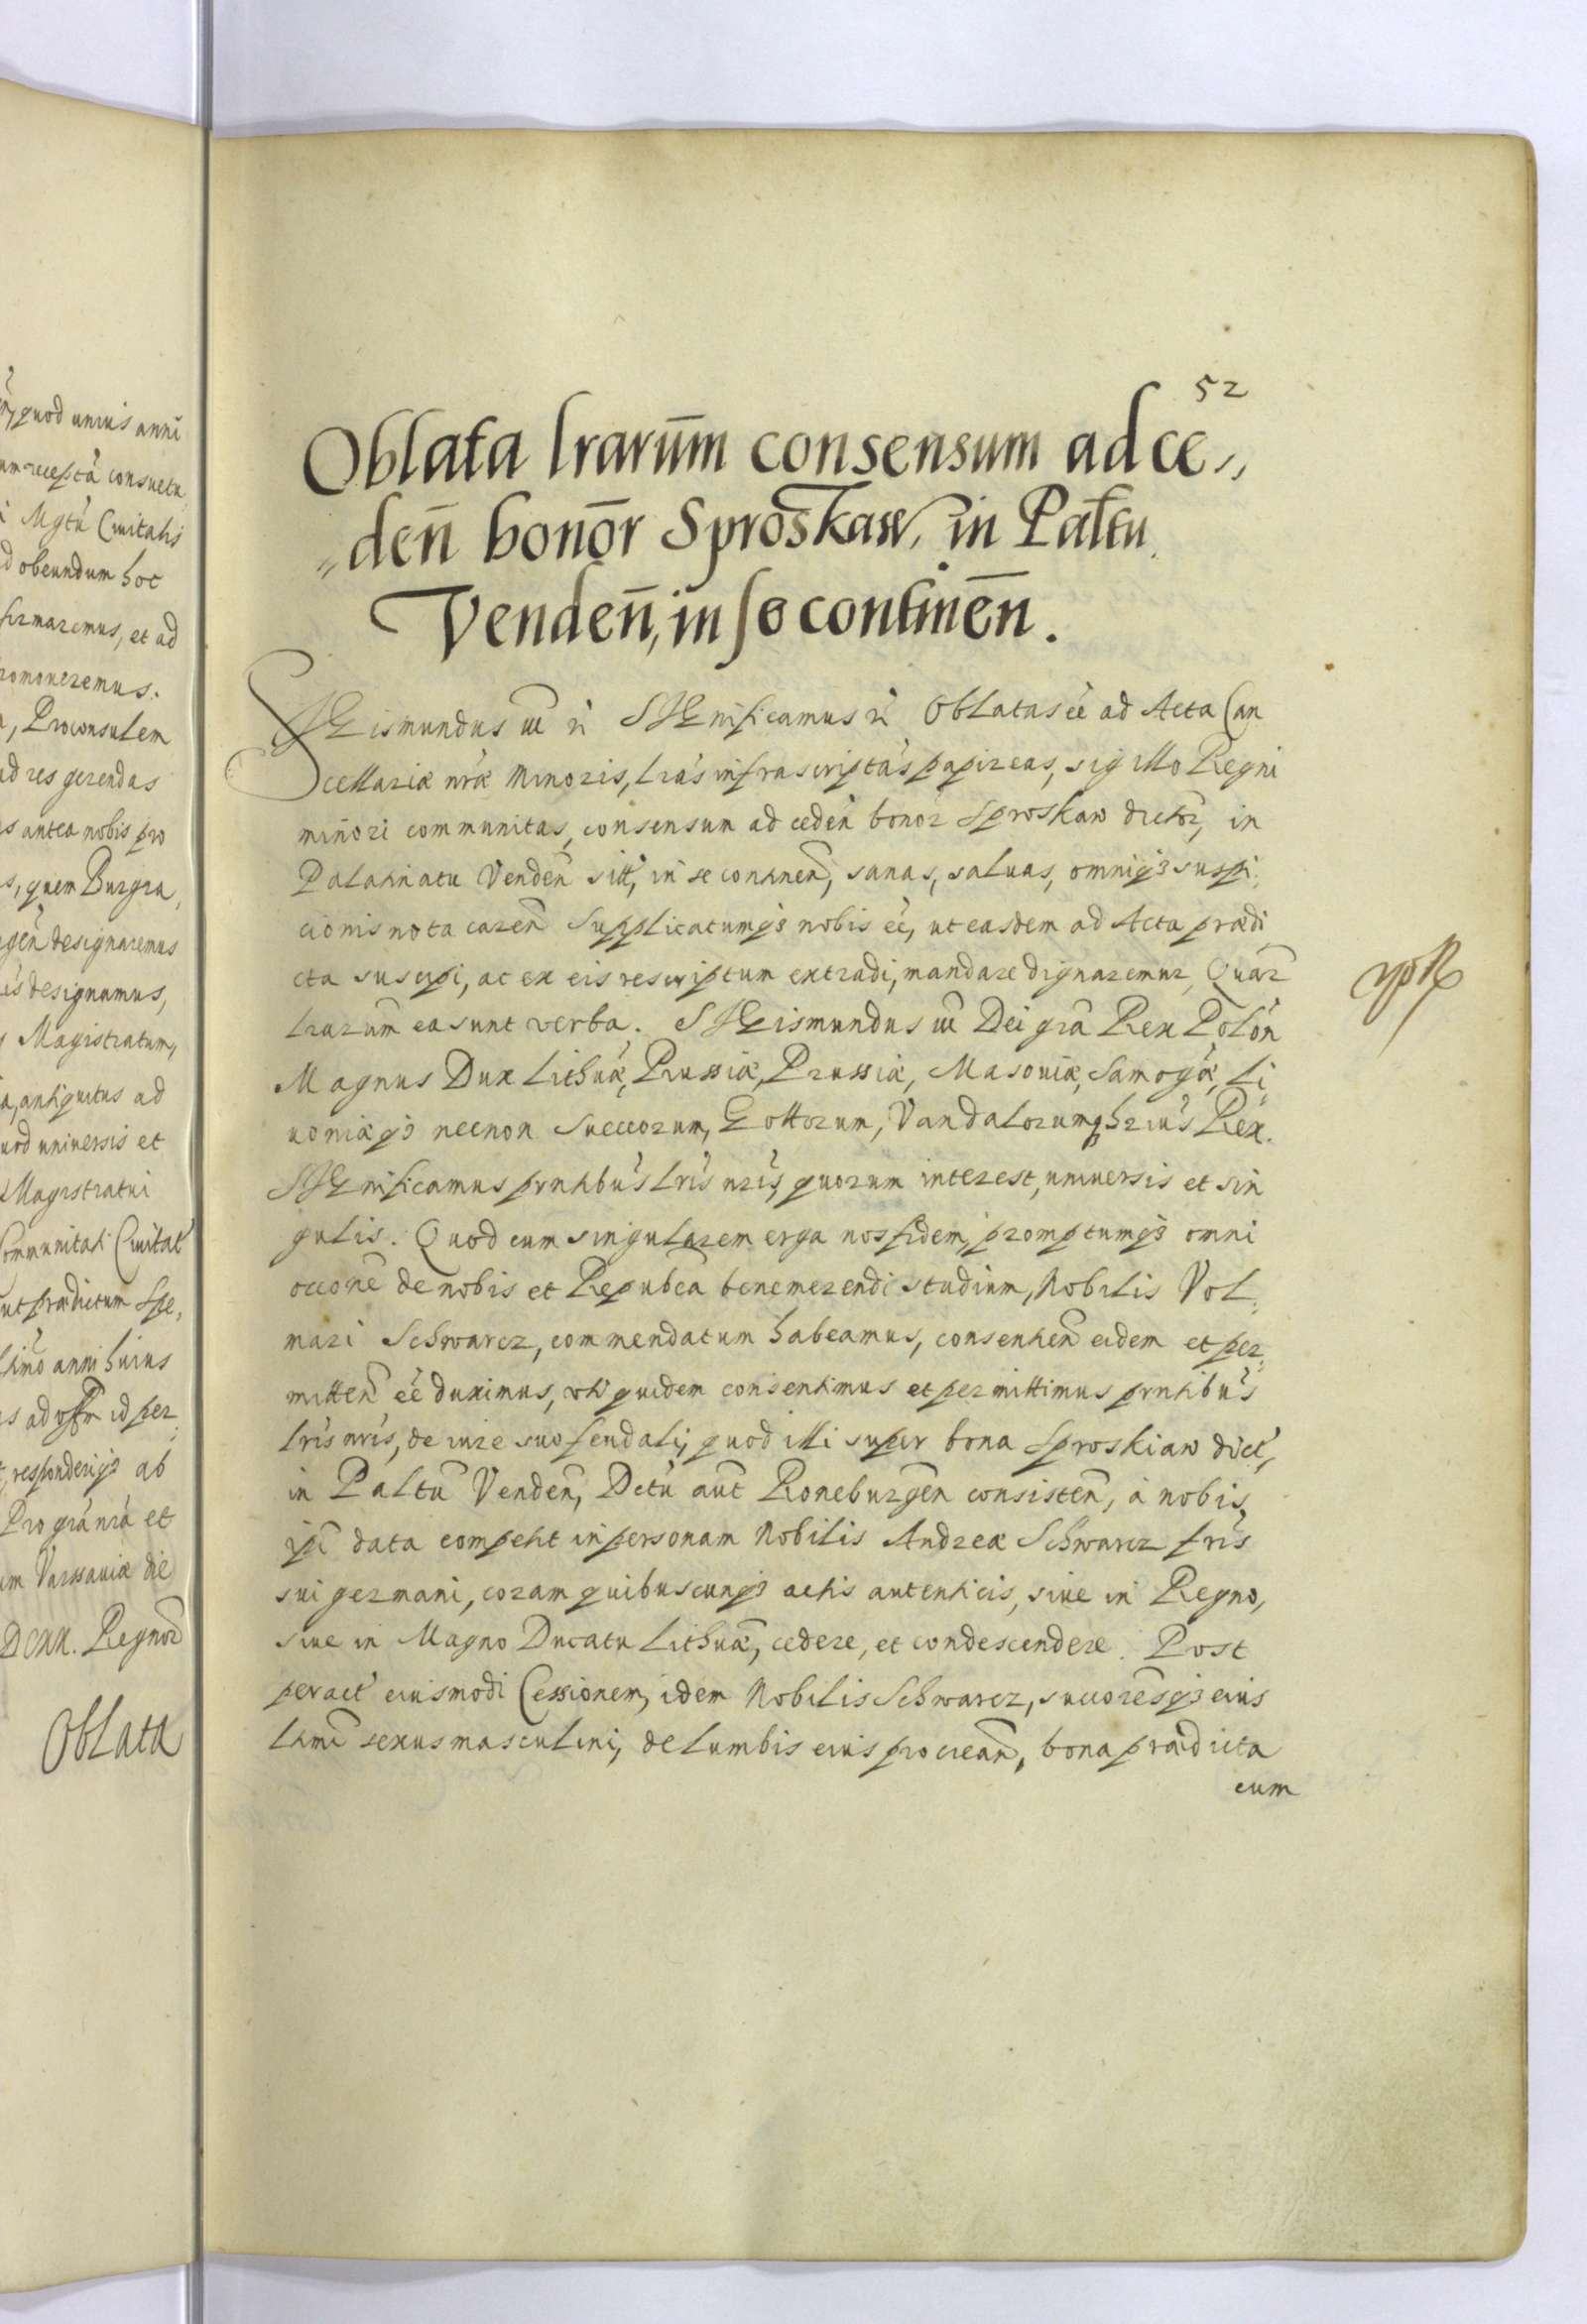 quod unius anni
recepta consuetu
Mgtu Civitatis
d obeundum hoc
firmaremus, et ad
romoveremus.
Proconsulem
ad res gerendas
s antea nobis pro
s, quem Burgra,
gen̄ designaremus
designamus,
Magistratum,
antiquitus ad
uod universis et
Magistratui
Communitati Civitat
ut prædictum Spe,
anni huius
id per
responderiqz ab
Pro gra nra et
um Varssaviæ die
DCXX. Regnor̄
Oblata
52
Oblata lrarum̄ consensum ad ce„
„den̄ bonor̄ Sproskaw, in Paltu
Venden̄, in se continen̄.
SIGismundus III r̄ SIGnificamus r̄ Oblatas eē ad Acta Can
cellariæ nræ Minoris, lras infrascriptas papireas, sigillo Regni
minori communitas, consensum ad ceden̄ bonor̄ Sproskaw dictor̄, in
Palatinatu Venden̄ sitt, in se continen̄, sanas, salvas, omniqz suspi:
cionis nota caren̄ Supplicatumqz nobis eē, ut easdem ad Acta prædi
cta suscipi, ac ex eis rescriptum extradi, mandare dignaremur, Quar̄
lrarum̄ ea sunt verba. SIGismundus III Dei gra Rex Polon̄
Magnus Dux Lithuæ, Russiæ, Prussiæ, Masoviæ, Samogæ, Li
voniæqz necnon Sueccorum, Gottorum, Vandalorumqz hrius Rex.
SIGnificamus prntibus lris nris, quorum interest, universis et sin
gulis. Quod cum singularem erga nos fidem, promptumqz omni
occone de nobis et Repubca benemerendi studium, Nobilis Vol:
mari Schwarcz, commendatum habeamus, consentien̄ eidem et per:
mitten̄ eē duximus, uti quidem consentimus et permittimus prntibus
lris nris, de iure suo feudali, quod illi super bona Sproskiaw dict,
in Paltu Venden̄, Dctu aut Roneburgen̄ consisten̄, à nobis
ipi data competit in personam Nobilis Andreæ Schwarcz fris
sui germani, coram quibuscunqz actis autenticis, sive in Regno,
sive in Magno Ducatu Lithuæ, cedere, et condescendere. Post
peract eiusmodi Cessionem, idem Nobilis Schwarcz, succoresqz eius
ltimi sexus masculini, de lumbis eius procrean̄, bona prædicta
cum